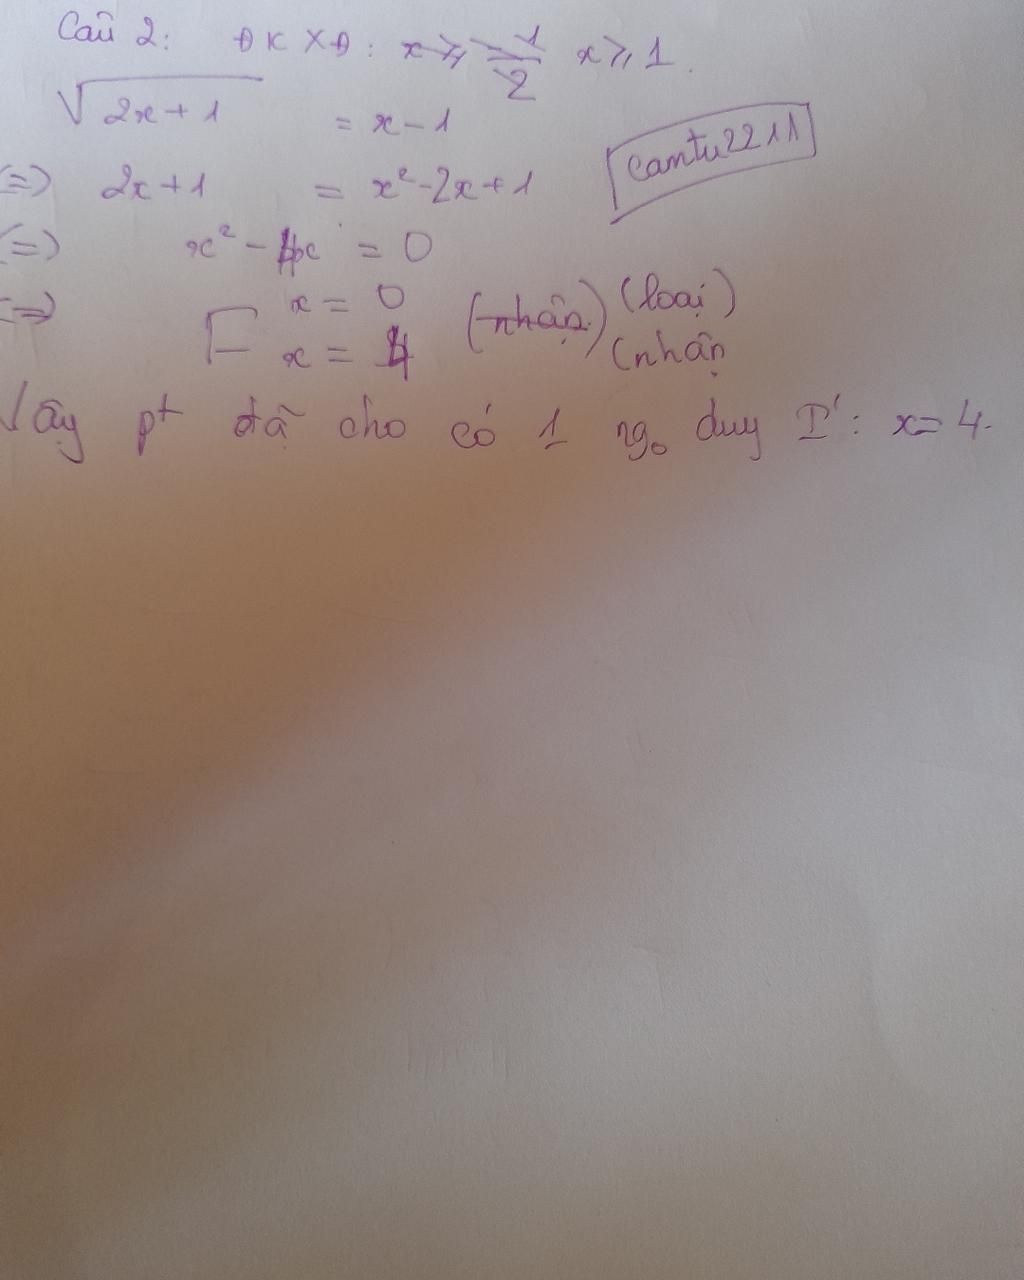 Câu 2: ĐKXĐ: x ≥ -1/2 x ≥ 1.
√2x+1 = x-1
(=) 2x+1 = x²-2x+1
camtu2211
(=) x² - 4x = 0
(=) [ x = 0 (nhận) (loại)
x = 4 (nhận
Vậy pt đã cho có 1 ngo duy I': x=4.